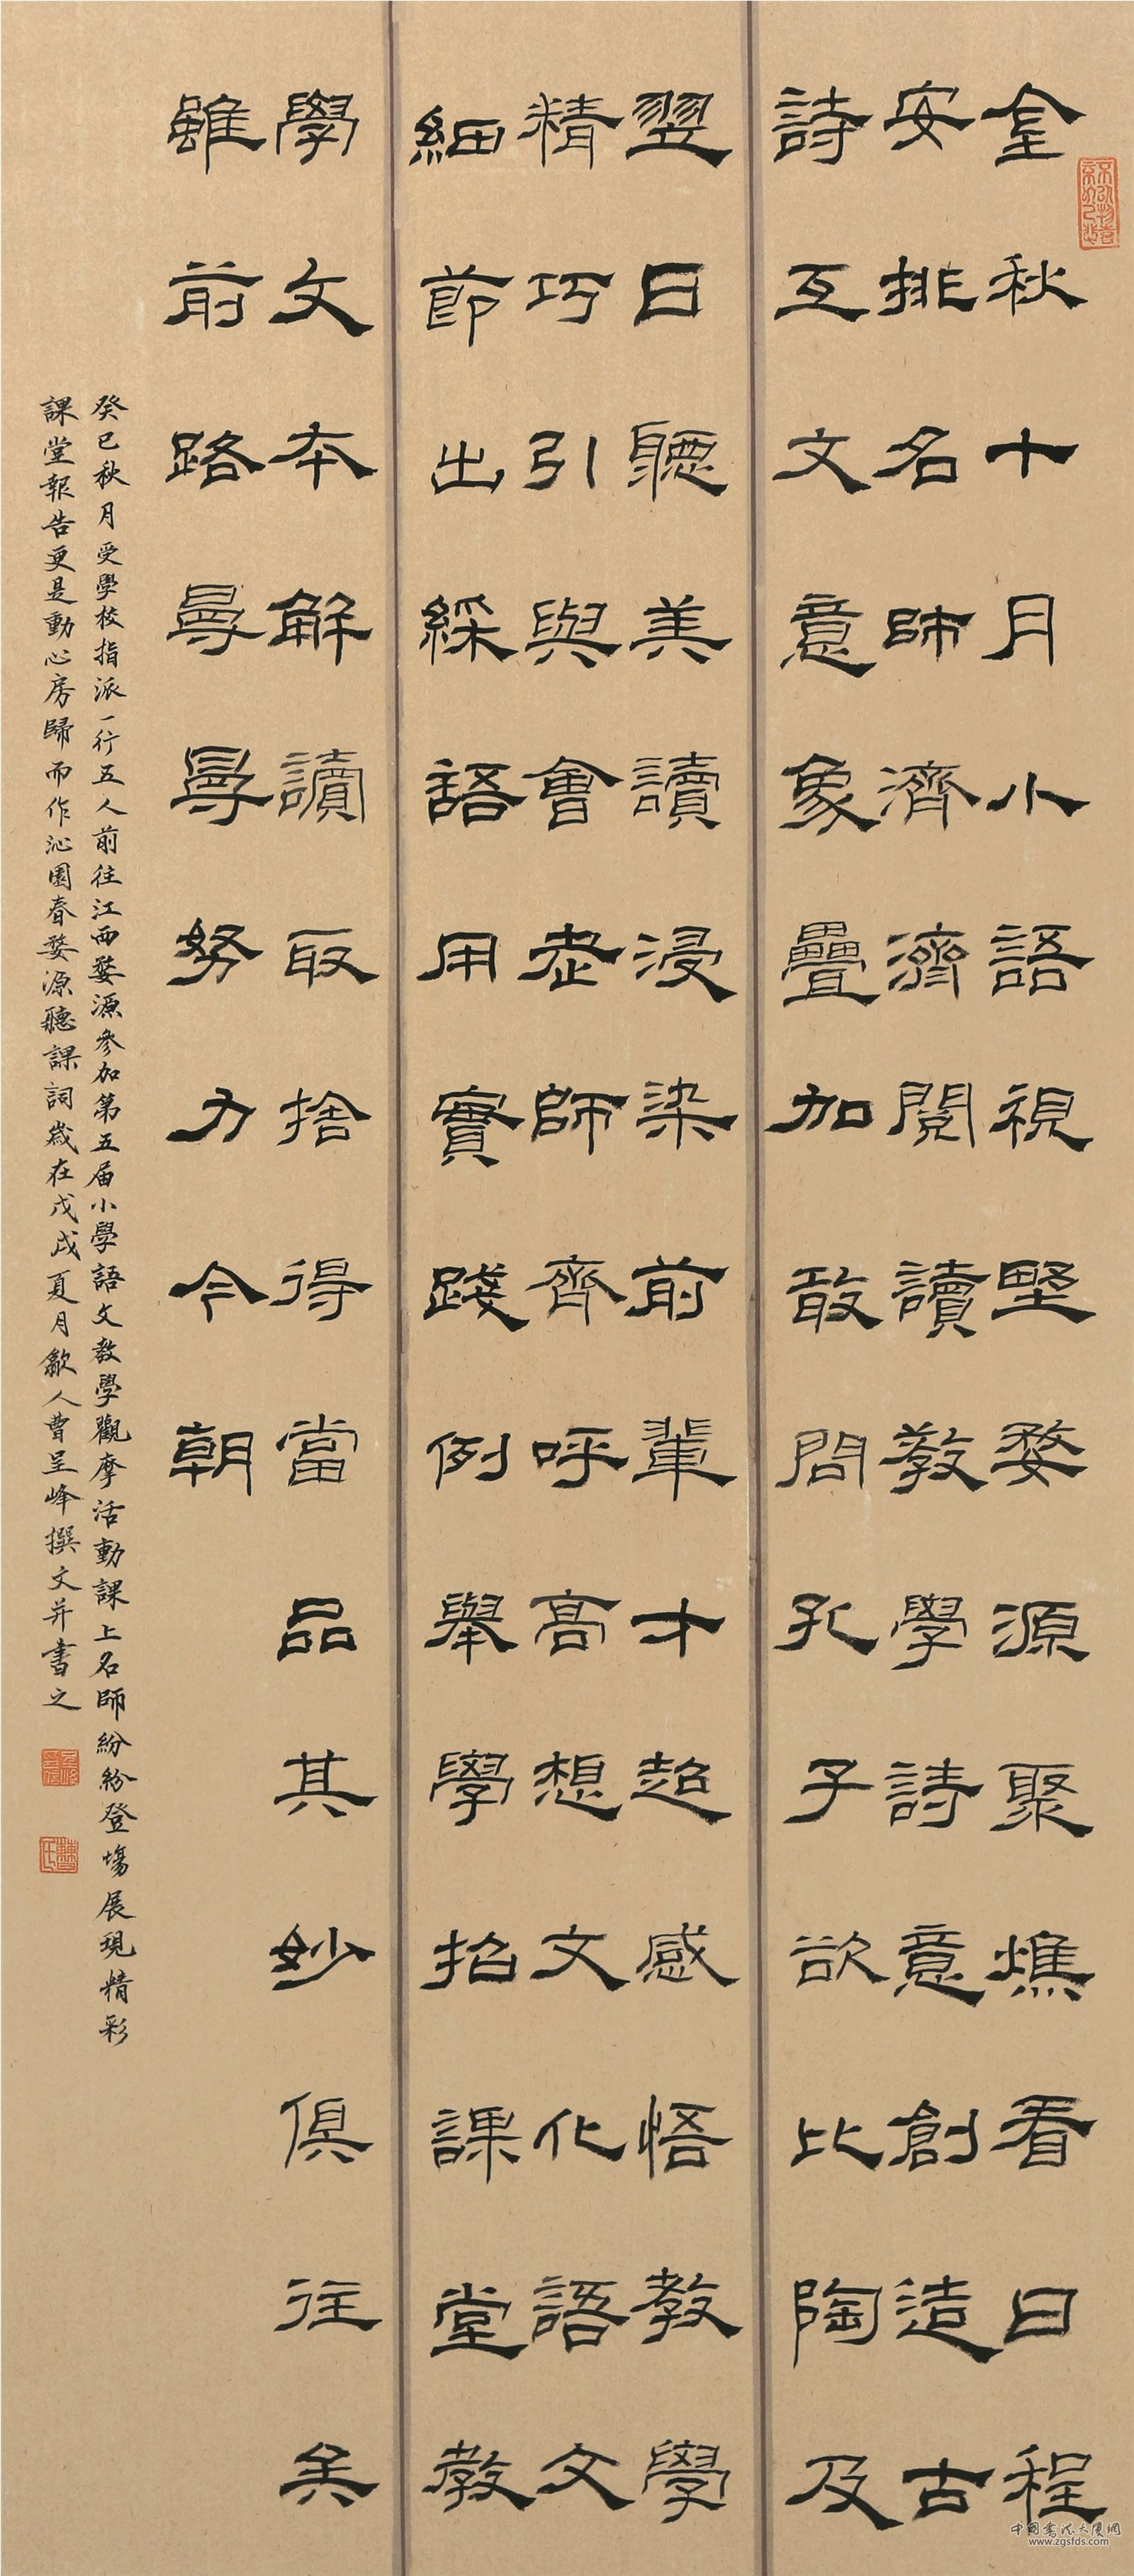 金秋十月小語視野婺源聚燋看日程
安排名師濟濟閱讀教學詩意創造古
詩互文意象疊加敢問孔子欲比陶及
翌日聽美讀浸染前輩才超感悟教學
精巧引與會老師齊呼高想文化語文
細節出綵語用實踐例舉學招課堂教
學文本解讀取捨得當品其妙俱往矣
雖前路曼曼努力今朝
癸巳秋月受學校指派一行五人前往江西婺源參加第五届小學語文教學觀摩活動課上名師紛紛登場展現精彩
課堂報告更是動心房歸而作沁園春婺源聽課詞歲在戊戌夏月歙人曹呈峰撰文并書之
中国书法大厦網
www.zgsfds.com